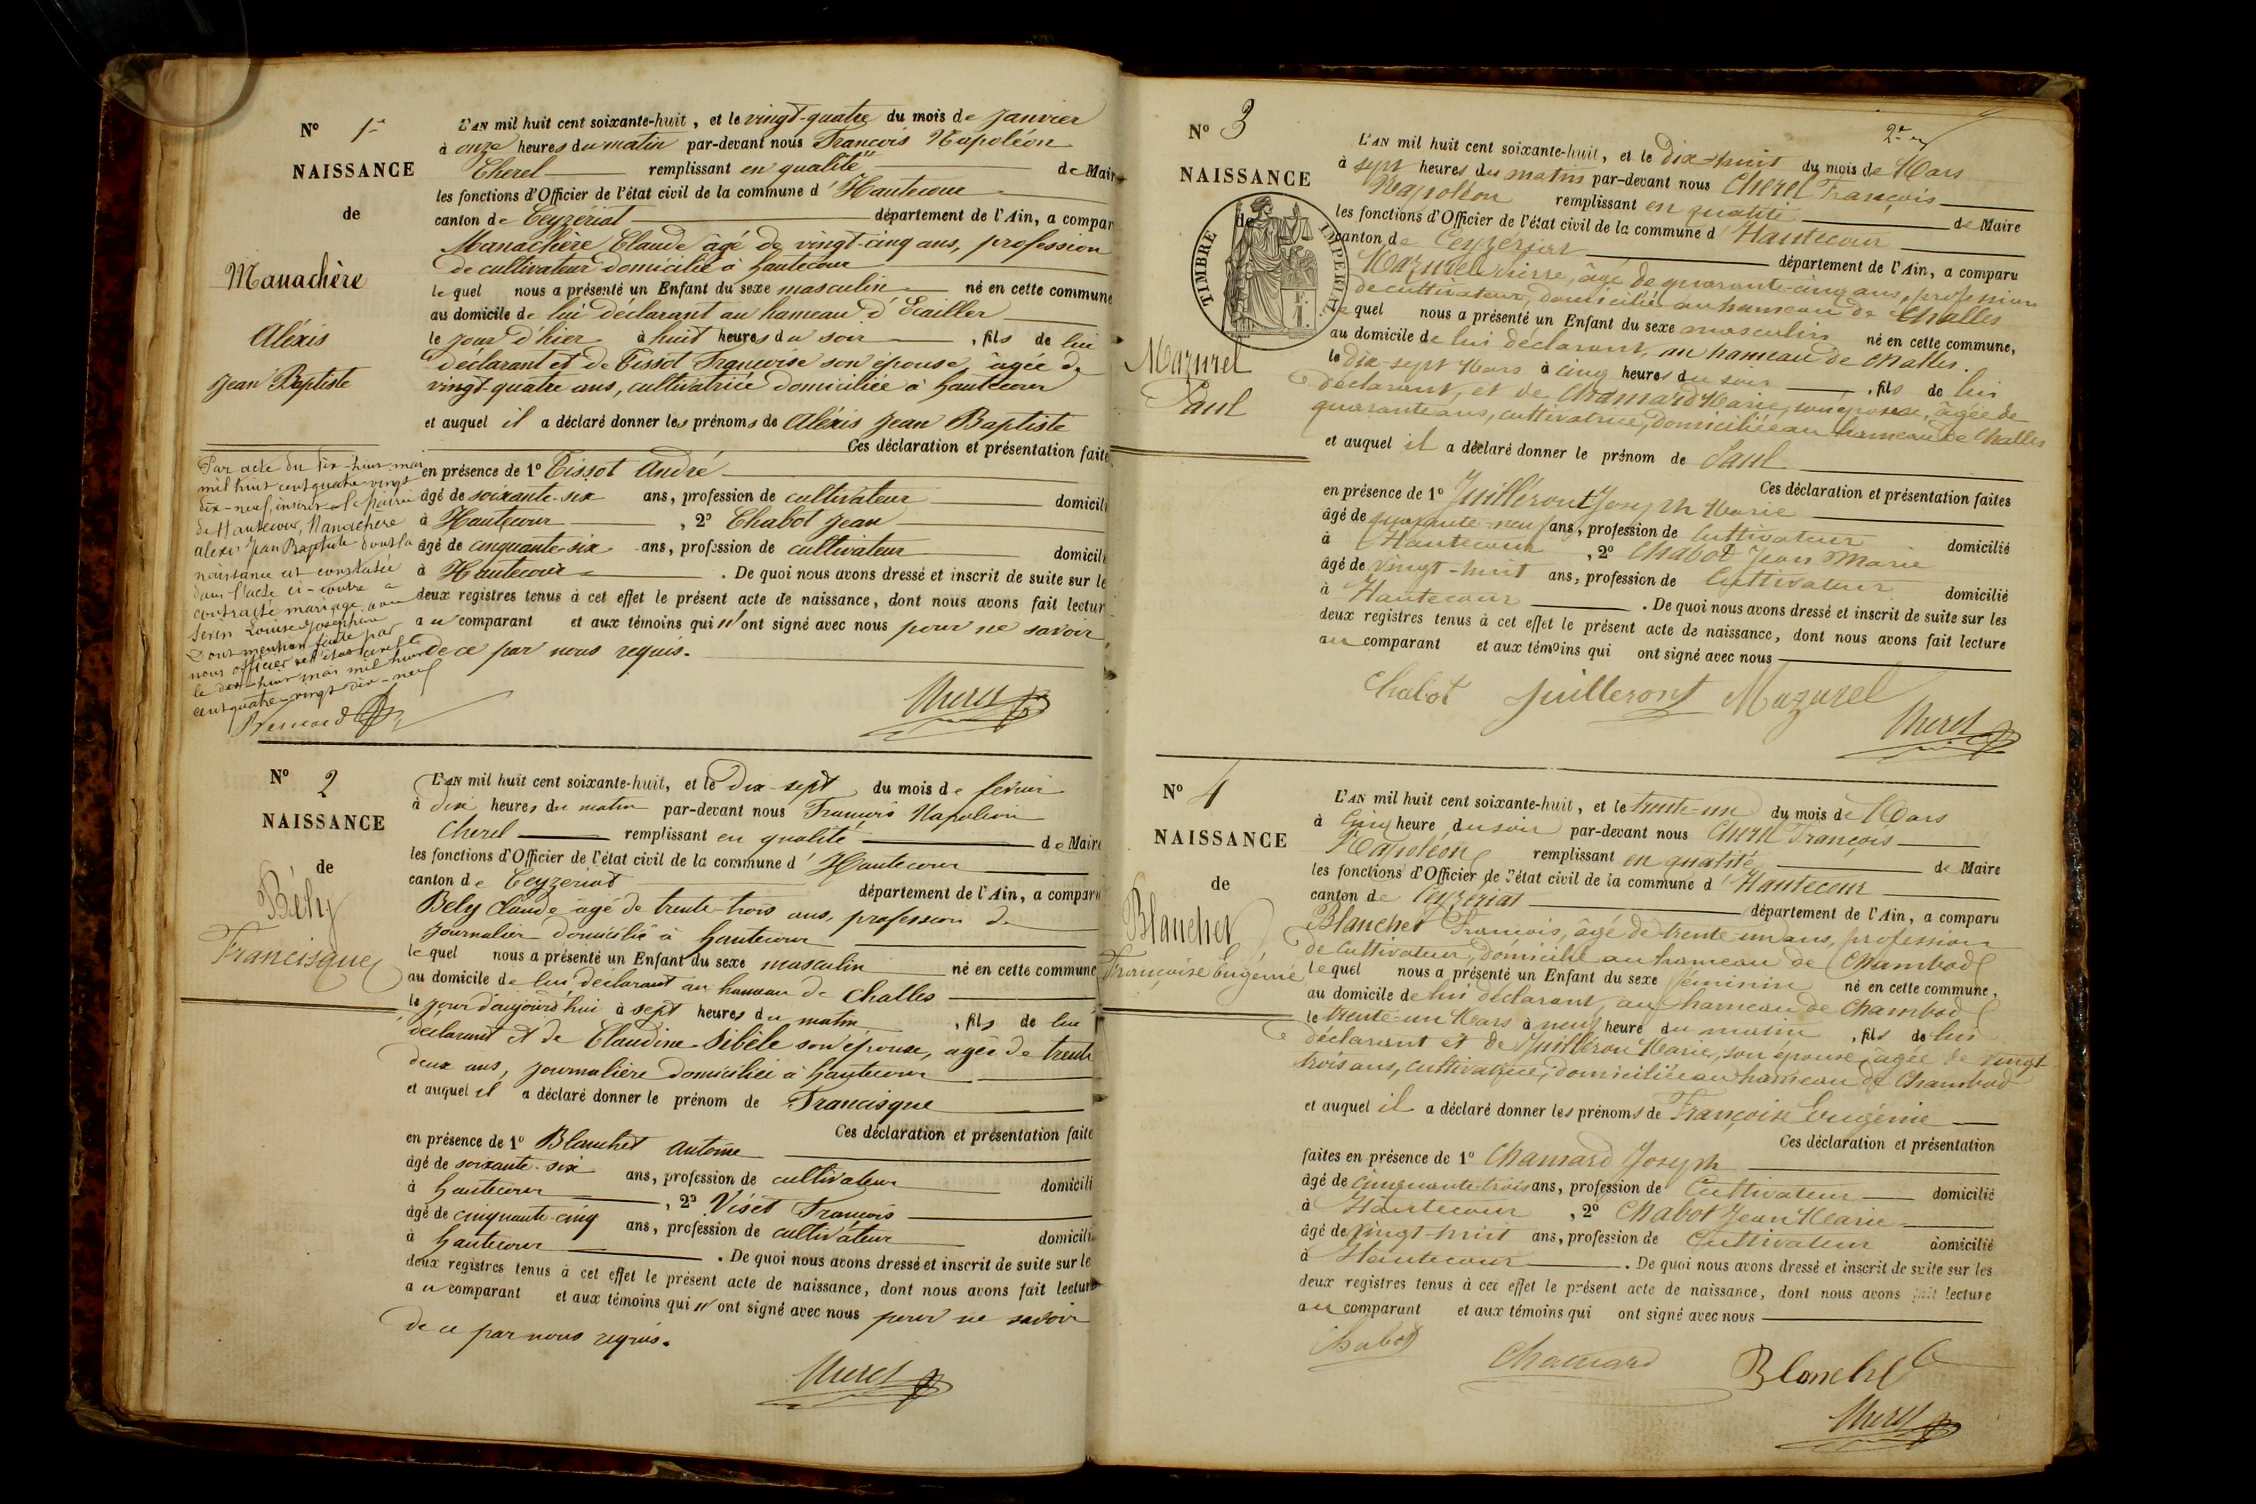 N° 1er
NAISSANCE
de
Manachère
Aléxis
Jean Baptiste
L'AN mil huit cent soixante-huit, et le vingt-quatre du mois de Janvier
à onze heures du matin par-devant nous François Napoléon
Cherel remplissant en qualité de Mair
les fonctions d'Officier de l'état civil de la commune d'Hautecour
canton de Ceyzériat département de l'Ain, a compar
Manachère Claude âgé de vingt-cinq ans, profession
de cultivateur domicilié à hautecour
lequel nous a présenté un Enfant du sexe masculin né en cette commune
au domicile de lui déclarant au hameau d'Ecailler
le jour d'hier à huit heures du soir, fils de lui
déclarant et de Tissot Françoise son épouse âgée de
vingt-quatre ans, cultivatrice domiciliée à hautecour
et auquel il a déclaré donner les prénoms de Aléxis Jean Baptiste
Ces déclaration et présentation faite
en présence de 1° Tissot André
âgé de soixante-six ans, profession de cultivateur domicili
à Hautecour, 2° Chabot Jean
âgé de cinquante-six ans, profession de cultivateur domicili
à Hautecour. De quoi nous avons dressé et inscrit de suite sur le
deux registres tenus à cet effet le présent acte de naissance, dont nous avons fait lectur
au comparant et aux témoins qui n'ont signé avec nous pour ne savoir
de ce par nous requis.
Cherel
Par acte du dix-huit mai
mil huit cent quatre-vingt
dix-neuf, inscrit à la mairie
de Hautecour, Manachère
alexis Jean Baptiste dont la
naissance est constatée
dans l'acte ci-contre a
contracté mariage avec
Louise Joséphine
Dont mention faite par
nous officier de l'état civil
le dix-huit mai mil huit
cent quatre-vingt dix-neuf
N° 2
NAISSANCE
de
Bély
Francisque
L'AN mil huit cent soixante-huit, et le Dix-sept du mois de février
à dix heures du matin par-devant nous François Napoléon
Cherel remplissant en qualité de Maire
les fonctions d'Officier de l'état civil de la commune d'Hautecour
canton de Ceyzeriat département de l'Ain, a comparu
Bely Claude âgé de trente-trois ans, profession de
journalier domicilié à hautecour
lequel nous a présenté un Enfant du sexe masculin né en cette commune
au domicile de lui déclarant au hameau de Challes
le jour d'aujourd'hui à sept heures du matin, fils de lui
déclarant et de Claudine Sibèle son épouse, agée de trente
deux ans, journalière domiciliée à hautecour
et auquel il a déclaré donner le prénom de Francisque
Ces déclaration et présentation faite
en présence de 1° Blanchet Antoine
âgé de soixante-six ans, profession de cultivateur domicili
à hautecour, 2° Viset François
âgé de cinquante-cinq ans, profession de cultivateur domicili
à hautecour. De quoi nous avons dressé et inscrit de suite sur le
deux registres tenus à cet effet le présent acte de naissance, dont nous avons fait lecture
au comparant et aux témoins qui n'ont signé avec nous pour ne savoir
de ce par nous requis.
Cherel
2e
N° 3
NAISSANCE
de
TIMBRE IMPERIAL
Mazurel
Paul
L'AN mil huit cent soixante-huit, et le dix-huit du mois de Mars
à sept heures du matin par-devant nous Cherel François
Napoléon remplissant en qualité de Maire
les fonctions d'Officier de l'état civil de la commune d'Hautecour
canton de Ceyzériat département de l'Ain, a comparu
Mazurel Pierre, âgé de quarante-cinq ans, profession
de cultivateur, domicilié au hameau de Challes
lequel nous a présenté un Enfant du sexe masculin né en cette commune,
au domicile de lui déclarant, au hameau de Challes.
le dix-sept Mars à cinq heures du soir, fils de lui
déclarant, et de Chamard Marie, son épouse, âgée de
quarante ans, cultivatrice, domiciliée au hameau de Challes
et auquel il a déclaré donner le prénom de Paul
Ces déclaration et présentation faites
en présence de 1° Juilleront Joseph Marie
âgé de quarante-neuf ans, profession de Cultivateur domicilié
à Hautecour, 2° Chabot Jean Marie
âgé de vingt-huit ans, profession de Cultivateur domicilié
à Hautecour. De quoi nous avons dressé et inscrit de suite sur les
deux registres tenus à cet effet le présent acte de naissance, dont nous avons fait lecture
au comparant et aux témoins qui ont signé avec nous
Chabot Juilleront Mazurel
Cherel
N° 4
NAISSANCE
de
Blanchet
Françoise Eugénie
L'AN mil huit cent soixante-huit, et le trente-un du mois de Mars
à Cinq heure du soir par-devant nous Cherel François
Napoléon remplissant en qualité de Maire
les fonctions d'Officier de l'état civil de la commune d'Hautecour
canton de Ceyzériat département de l'Ain, a comparu
Blanchet François, âgé de trente-un ans, profession
de Cultivateur, domicilié au hameau de Chambod
lequel nous a présenté un Enfant du sexe féminin né en cette commune,
au domicile de lui déclarant, au hameau de Chambod
le trente-un Mars à neuf heure du matin, fils de lui
déclarant et de Juilléron Marie, son épouse, âgée de vingt
trois ans, cultivatrice, domiciliée au hameau de Chambod
et auquel il a déclaré donner les prénoms de Françoise Eugénie
Ces déclaration et présentation
faites en présence de 1° Chamard Joseph
âgé de cinquante-trois ans, profession de Cultivateur domicilié
à Hautecour, 2° Chabot Jean Marie
âgé de vingt-huit ans, profession de Cultivateur domicilié
à Hautecour. De quoi nous avons dressé et inscrit de suite sur les
deux registres tenus à cet effet le présent acte de naissance, dont nous avons fait lecture
au comparant et aux témoins qui ont signé avec nous
Chabot Chamard Blanchet
Cherel